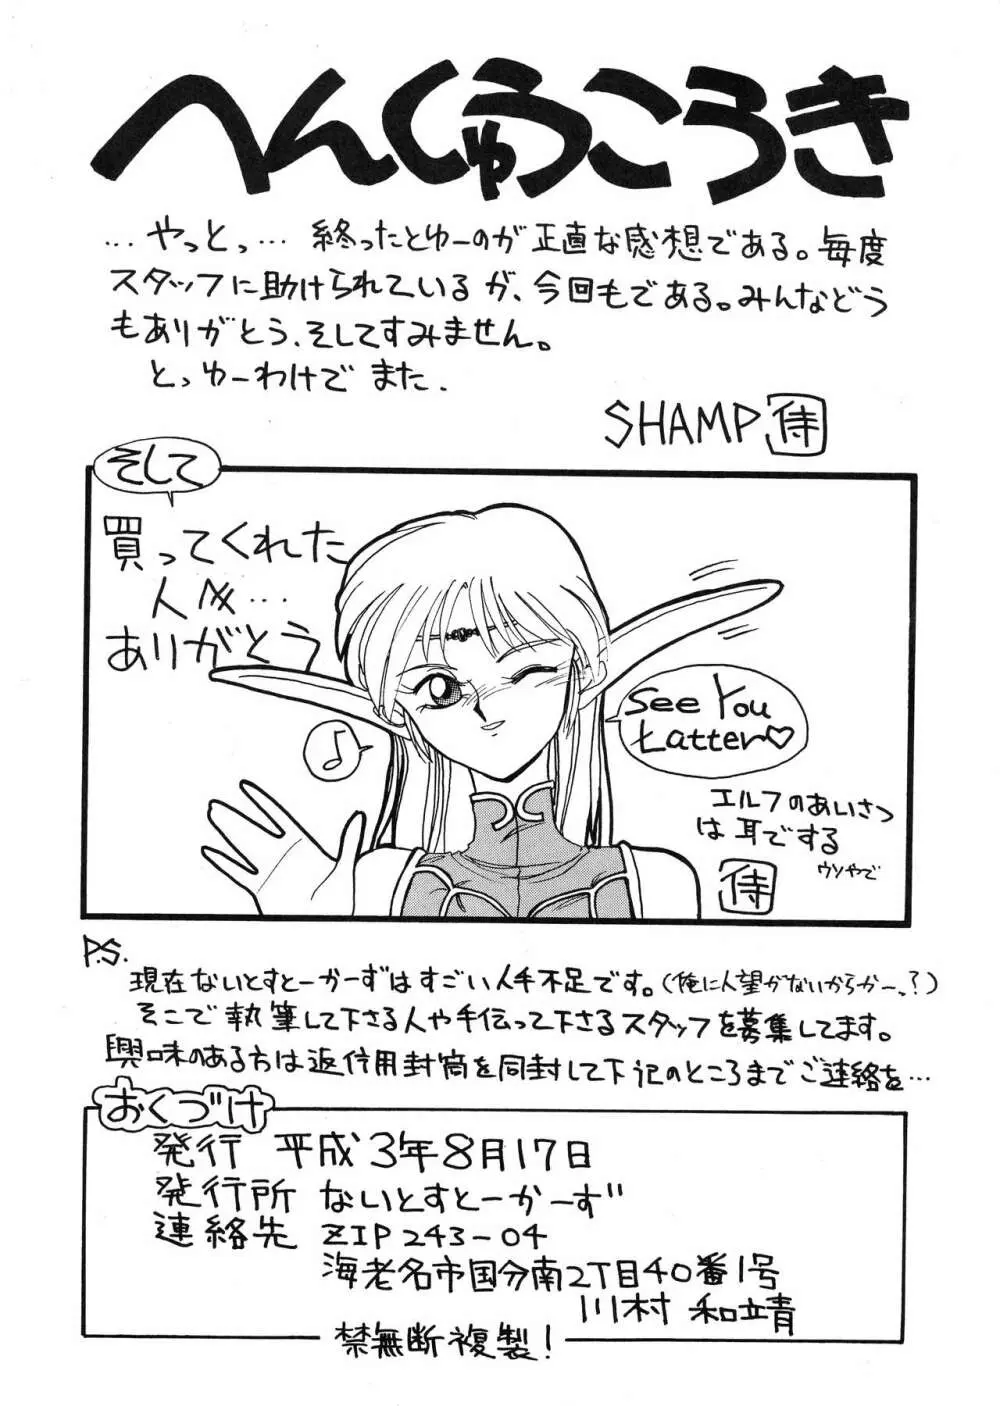 へんしゅうこうき
…やっとっ… 終ったとゆーのが正直な感想である。毎度
スタッフに助けられているが、今回もである。みんなどう
もありがとう、そしてすみません。
とっゆーわけで また.
SHAMP 侍
そして
買ってくれた
人々…
ありがとう
♪
See You
Latter♡
エルフのあいさつ
は耳でする
ウソやで
侍
P.S.
現在ないとすとーかーずはすごい人手不足です。(俺に人望がないからかーっ?)
そこで執筆して下さる人や手伝って下さるスタッフを募集してます。
興味のある方は返信用封筒を同封して下記のところまでご連絡を…
おくづけ
発行 平成3年8月17日
発行所 ないとすとーかーず
連絡先 ZIP 243-04
海老名市国分南2丁目40番1号
川村 和靖
禁無断複製!